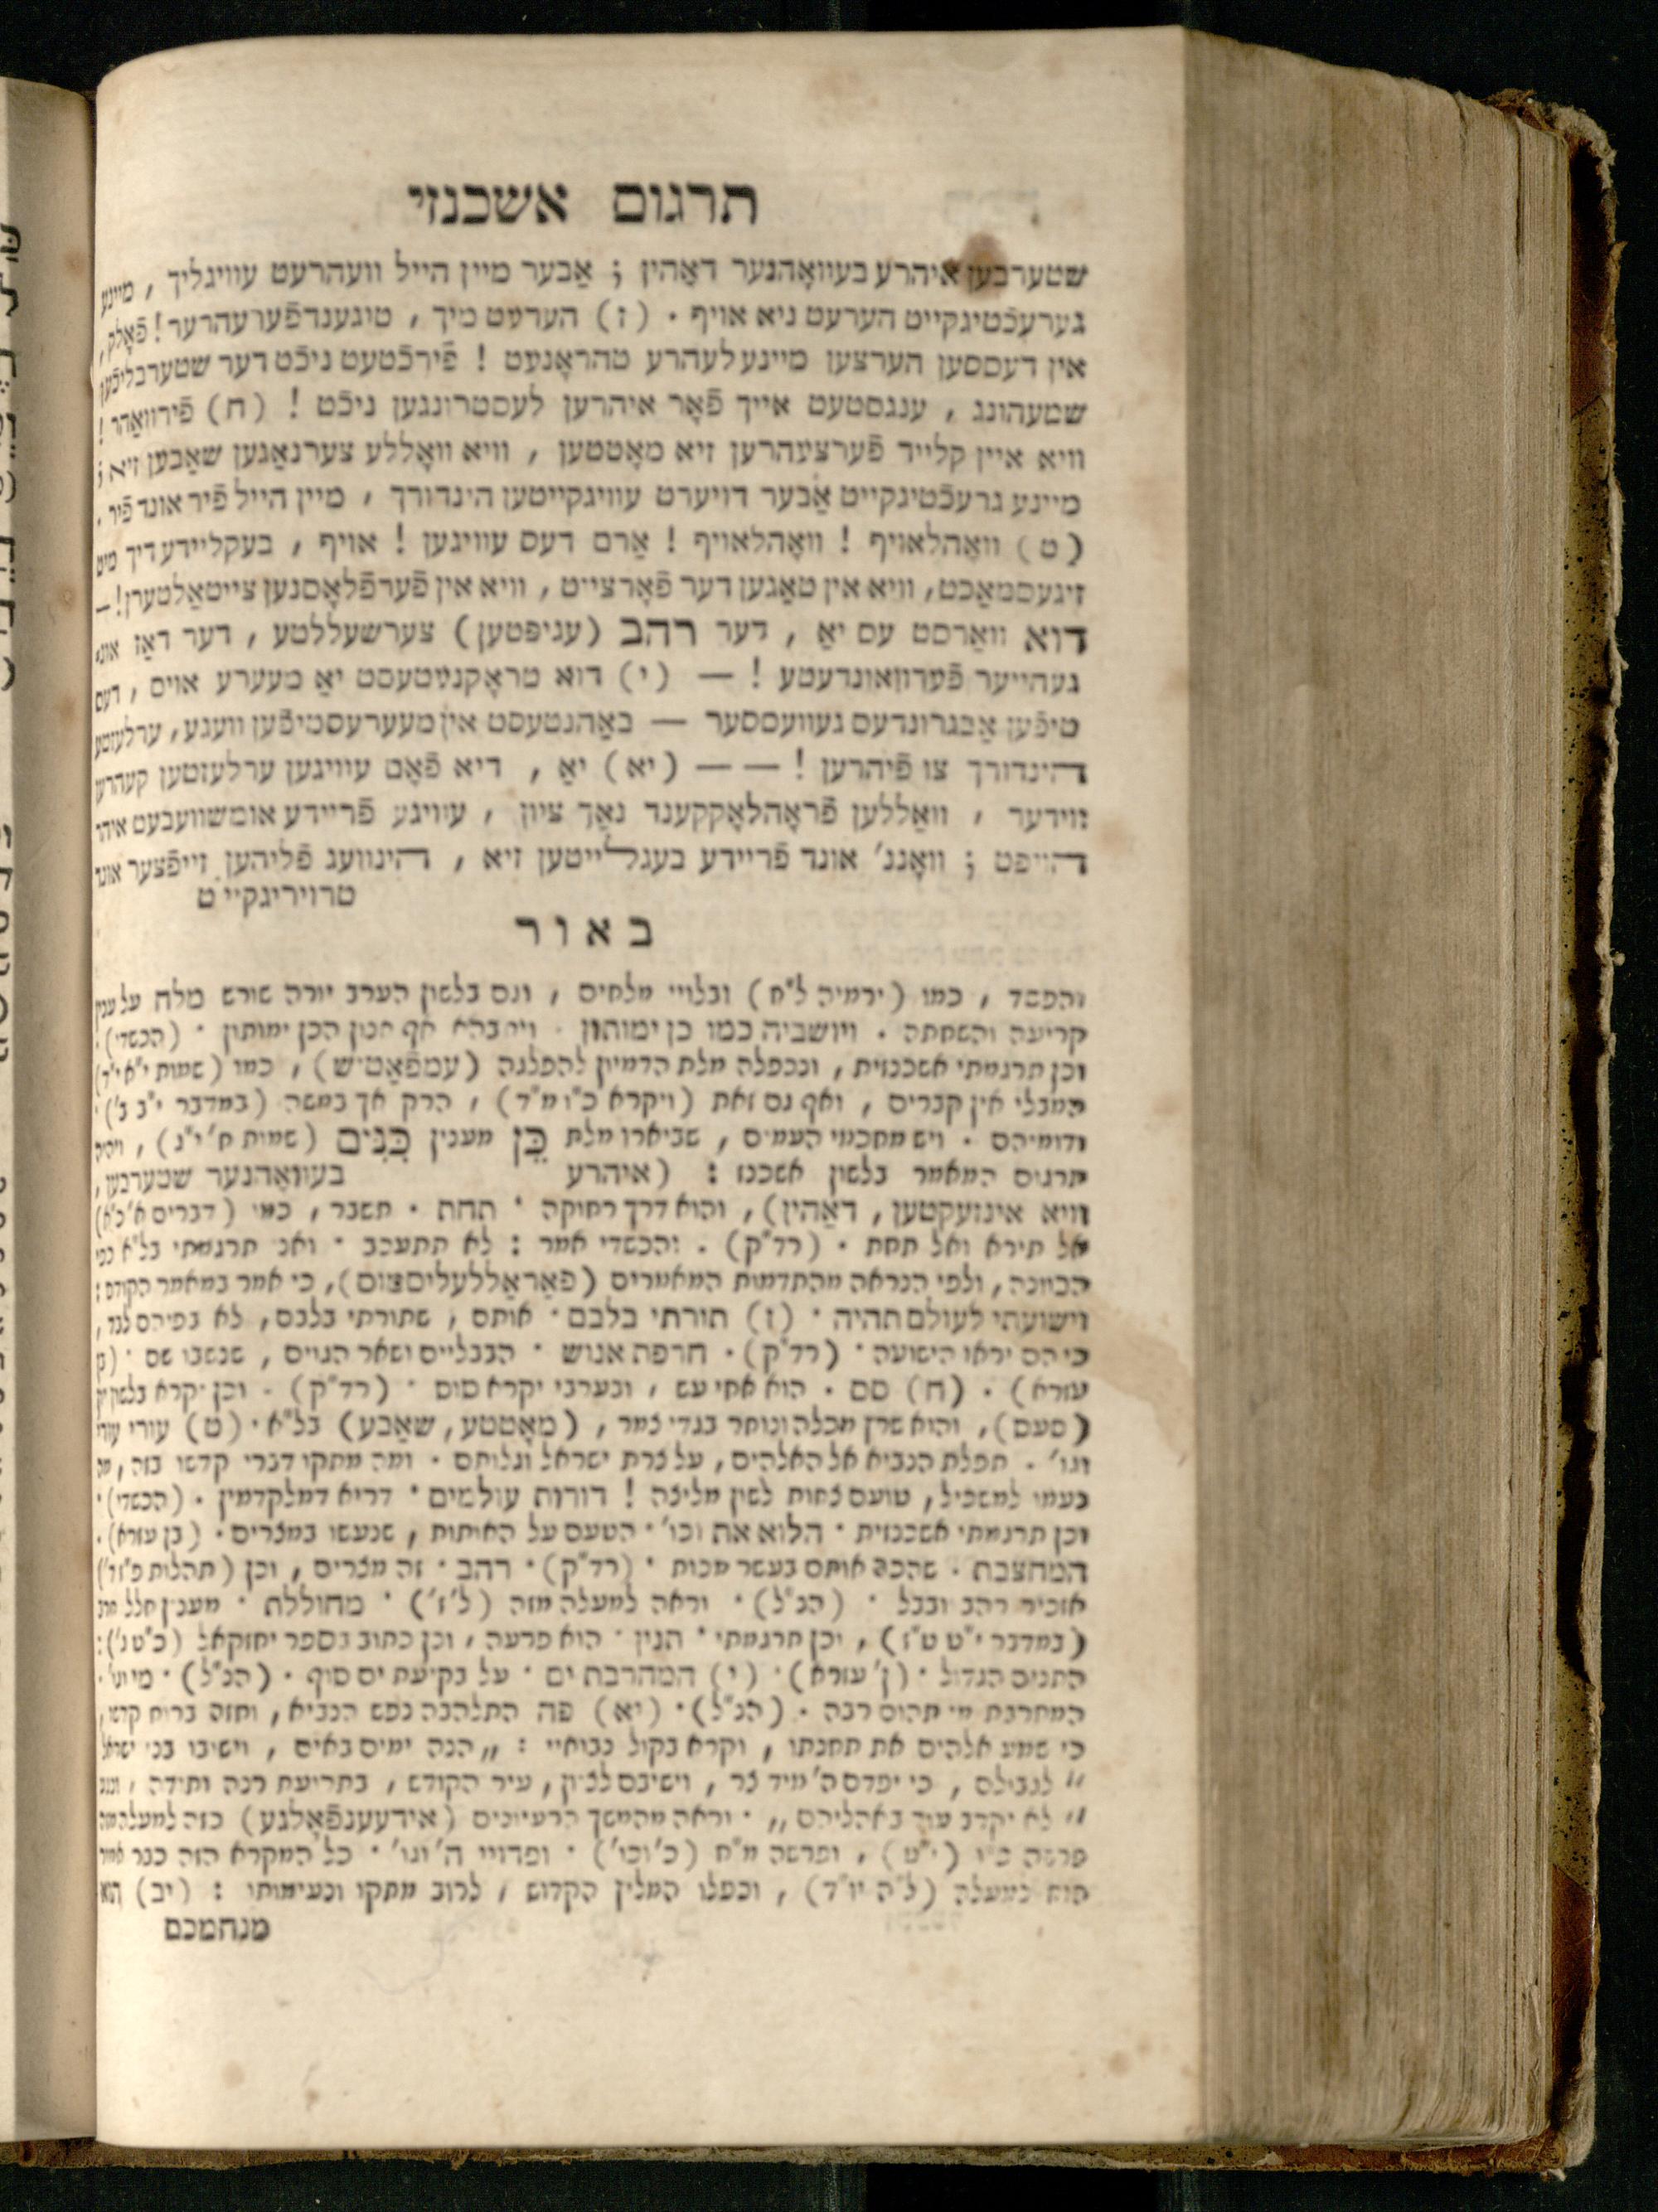 תרגום אשכנזי
שטערבען איהרע בעוואָהנער דאַהין ; אַבער מיין הייל וועהרעט עוויגליך , מיינע
גערעכֿטיגקייט הערעט ניא אויף . (ז) הערעט מיך , טוגענדפֿערעהרער ! פֿאָלק ,
אין דעססען הערצען מיינע לעהרע טהראָנעט ! פֿירכֿטעט ניכֿט דער שטערבליכֿען
שמעהונג , ענגסטעט אייך פֿאָר איהרען לעסטרונגען ניכֿט ! (ח) פֿירוואַהר !
וויא איין קלייד פֿערצעהרען זיא מאָטטען , וויא וואָללע צערנאַגען שאַבען זיא ;
מיינע גרעכֿטיגקייט אַבער דויערט עוויגקייטען הינדורך , מיין הייל פֿיר אונד פֿיר .
(ט) וואָהלאויף ! וואָהלאויף ! אַרם דעס עוויגען ! אויף , בעקליידע דיך מיט
זיגעסמאַכט , וויא אין טאַגען דער פֿאָרצייט , וויא אין פֿערפֿלאָסנען צייטאַלטערן ! —
דוא וואַרסט עס יאַ , דער רהב (עגיפטען) צערשעללטע , דער דאַז אונ
געהייער פֿערוואונדעטע ! — (י) דוא טראָקנעטעסט יאַ מעערע אויס , דעס
טיפֿען אַבגרונדעס געוועססער — באַהנטעסט אין מעערעסטיפֿען וועגע , ערלעזטע
הינדורך צו פֿיהרען ! — — (יא) יאַ , דיא פֿאָם עוויגען ערלעזטען קעהרען
ווידער , וואַללען פֿראָהלאָקקענד נאַך ציון , עוויגע פֿריידע אומשוועבעט איהר
הויפט ; וואָננ' אונד פֿריידע בעגלייטען זיא , הינוועג פֿליהען זייפֿצער אונד
טרויריגקייט
באור
והפסד , כמו (ירמיה ל"ח) ובלויי מלחים , וגם בלשון הערב יורה שורש מלח על ענין
קריעה והשחתה . ויושביה כמו כן ימותון . ויתבהא אף אנון הכן ימותון . (הכשדי) .
וכן תרגמתי אשכנזית , ונכפלה מלת הדמיון להפלגה (עמפֿאַטיש) , כמו (שמות י"א י"ד)
המבלי אין קברים , ואף גם זאת (ויקרא כ"ו מ"ד) , הרק אך במשה (במדבר י"ב ב') .
ודומיהם . ויש מחכמי העמים , שביארו מלת כֵּן מענין כִּנִּים (שמות ח' י"ג) , ויהיה
תרגום המאמר בלשון אשכנז : (איהרע בעוואָהנער שטערבען ,
וויא אינזעקטען , דאַהין) , והוא דרך רחוקה . תחת . תשבר , כמו (דברים א' כ"א)
אל תירא ואל תחת . (רד"ק) . והכשדי אמר : לא תתעכב . ואני תרגמתי בל"א כפי
הכוונה , ולפי הנראה מהתדמות המאמרים (פאַראַללעליסמוס) , כי אמר במאמר הקודם :
וישועתי לעולם תהיה . (ז) תורתי בלבם . אותם , שתורתי בלבם , לא בפיהם לבד ,
כי הם יראו הישועה . (רד"ק) . חרפת אנוש . הבבליים ושאר הגוים , שנשבו שם . (בן
עזרא) . (ח) סס . הוא אחי עש , ובערבי יקרא סוס . (רד"ק) . וכן יקרא בלשון יון
(סעס) , והוא שרץ מכלה ונותר בגדי צמר , (מאָטטע , שאַבע) בל"א . (ט) עורי עורי
וגו' . תפלת הנביא אל האלהים , על צרת ישראל וגלותם . ומה מתקו דברי קדשו בזה , מה
נעמו למשכיל , טועם צחות לשון מליצה ! דורות עולמים . דריא דמלקדמין . (הכשדי) .
וכן תרגמתי אשכנזית . הלוא את וכו' . הטעם על האותות , שנעשו במצרים . (בן עזרא) .
המחצבת . שהכה אותם בעשר מכות . (רד"ק) . רהב . זה מצרים , וכן (תהלות פ"ז ד')
אזכיר רהב ובבל . (הנ"ל) . וראה למעלה מזה (ל' ז') . מחוללת . מענין חלל חרב
(במדבר י"ט ט"ז) , וכן תרגמתי . תנין . הוא פרעה , וכן כתוב בספר יחזקאל (כ"ט ג') :
התנים הגדול . (ן' עזרא) . (י) המחרבת ים . על בקיעת ים סוף . (הנ"ל) . מי וגו' .
המחרבת מי תהום רבה . (הנ"ל) . (יא) פה התלהבה נפש הנביא , וחזה ברוח קדשו ,
כי שמע אלהים את תחנתו , וקרא בקול נבואיי : „ הנה ימים באים , וישיבו בני ישראל
" לגבולם , כי יפדם ה' מיד צר , וישיבם לציון , עיר הקודש , בתריעת רנה ותודה , ונוגה
" לא יקרב עוד באהליהם „ . וראה מהמשך הרעיונים (אידעענפֿאָלגע) כזה למעלה מזה
פרשה כ"ו (י"ט) , ופרשה מ"ח (כ' וכו') . ופדויי ה' וגו' . כל המקרא הזה כבר אמור
הוא למעלה (ל"ה יו"ד) , וכפלו המליץ הקדוש , לרוב מתקו ונעימותו : (יב) הוא
מנחמכם